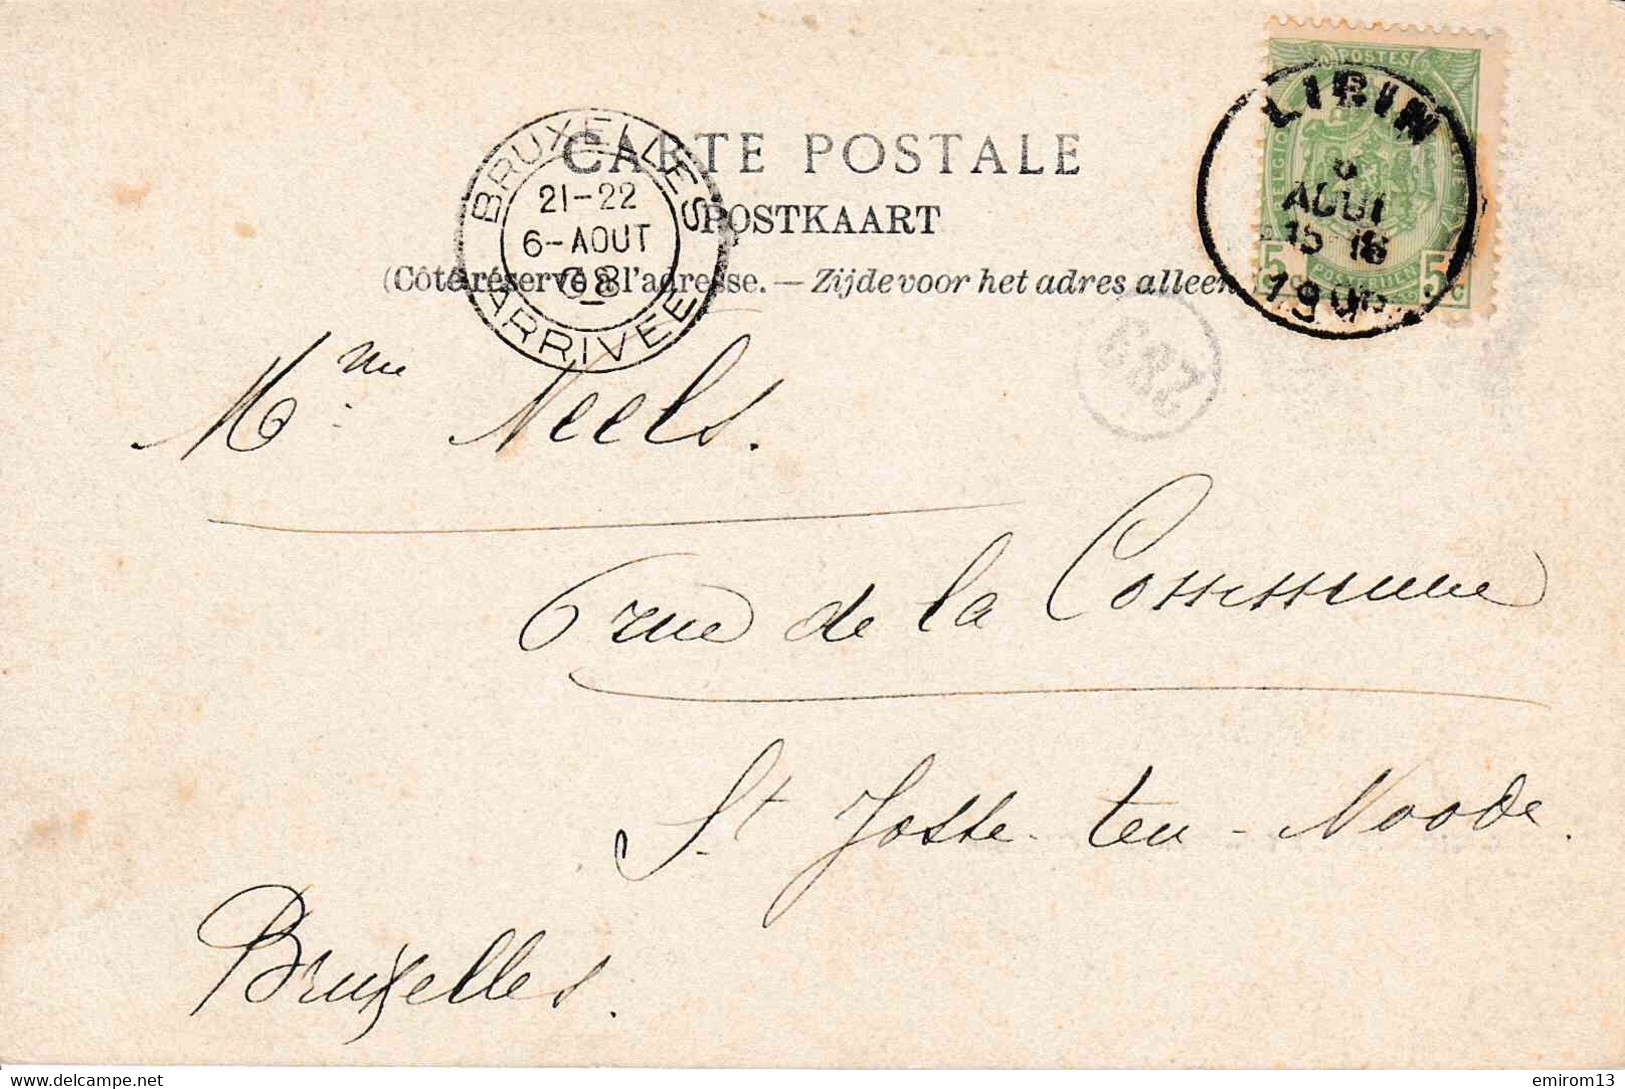 CARTE POSTALE
POSTKAART
(Côté réservé à l'adresse. — Zijde voor het adres alleen
BRUXELLES
21-22
6-AOUT
08
ARRIVÉE
LIBIN
AOUT
POSTES
5 5c
Mme Neels.
6 rue de la Commune
St Josse-ten-Noode.
Bruxelles.
www.delcampe.net
emirom13